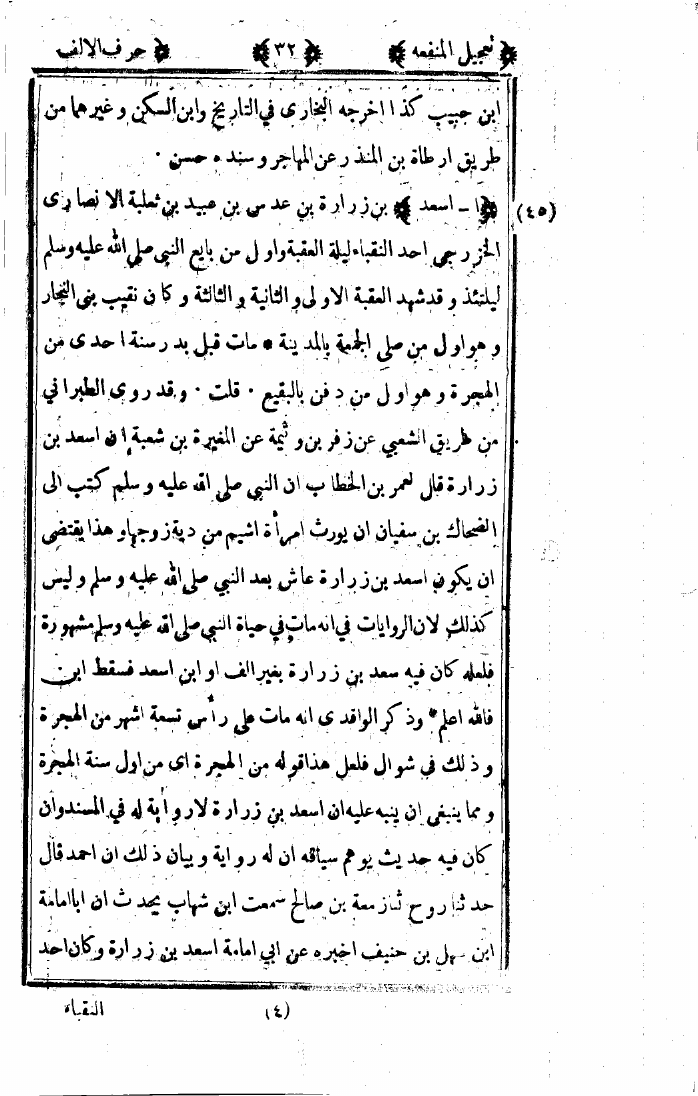 ﴿ تعجيل المنفعه ﴾ ﴿ ٣٢ ﴾ ﴿ حرف الالف ﴾
ابن حبيب كذا اخرجه البخارى في التاريخ وابن السكن وغيرهما من
طريق ارطاة بن المنذر عن المهاجر وسنده حسن ٠
(٤٥) ﴿ ا ـ اسعد ﴾ بن زرارة بن عدس بن عبيد بن ثعلبة الانصارى
الخزرجي احد النقباء ليلة العقبة واول من بايع النبي صلى الله عليه وسلم
ليلتئذ وقد شهد العقبة الاولى والثانية والثالثة وكان نقيب بنى النجار
وهو اول من صلى الجمعة بالمدينة * مات قبل بدر سنة احدى من
الهجرة وهو اول من دفن بالبقيع ٠ قلت ٠ وقد روى الطبراني
من طريق الشعبي عن زفر بن وثيمة عن المغيرة بن شعبة ان اسعد بن
زرارة قال لعمر بن الخطاب ان النبي صلى الله عليه وسلم كتب الى
الضحاك بن سفيان ان يورث امرأة اشيم من دية زوجها وهذا يقتضى
ان يكون اسعد بن زرارة عاش بعد النبي صلى الله عليه وسلم وليس
كذلك لان الروايات في انه مات في حياة النبي صلى الله عليه وسلم مشهورة
فلعله كان فيه سعد بن زرارة بغير الف او ابن اسعد فسقط ابن
فالله اعلم * وذكر الواقدى انه مات على رأس تسعة اشهر من الهجرة
وذلك في شوال فلعل هذا قوله من الهجرة اى من اول سنة الهجرة
ومما ينبغى ان ينبه عليه ان اسعد بن زرارة لا رواية له في المسند وان
كان فيه حديث يوهم سياقه ان له رواية وبيان ذلك ان احمد قال
حدثنا روح ثنا زمعة بن صالح سمعت ابن شهاب يحدث ان ابا امامة
ابن سهل بن حنيف اخبره عن ابي امامة اسعد بن زرارة وكان احد
(٤) النقباء